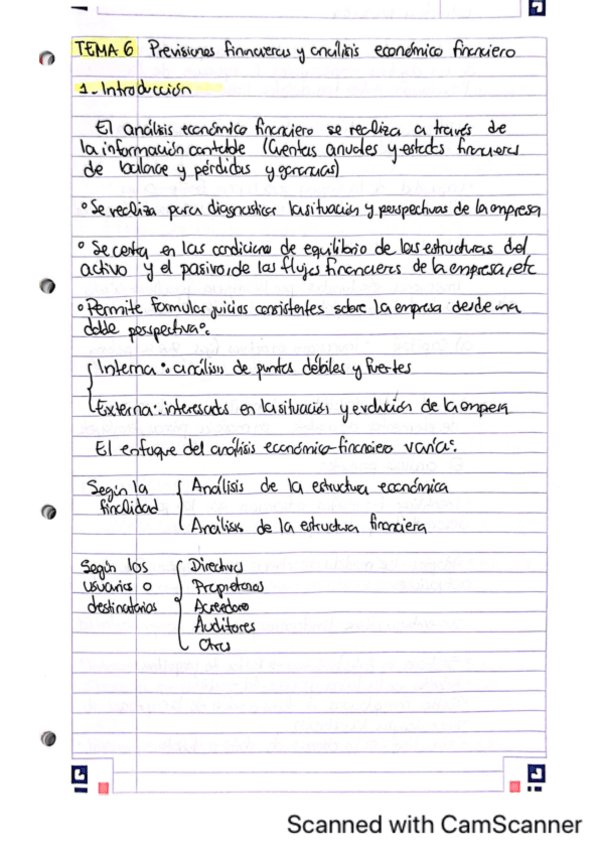 TEMA 6 Previsiones financieras y análisis económico financiero
1.- Introducción
El análisis económico financiero se realiza a través de
la información contable (Cuentas anuales y estados financieros
de balance y pérdidas y ganancias)
° Se realiza para diagnosticar la situación y perspectivas de la empresa
° Se centra en las condiciones de equilibrio de las estructuras del
activo y el pasivo, de los flujos financieros de la empresa, etc
° Permite formular juicios consistentes sobre la empresa desde una
doble perspectiva:
Interna: análisis de puntos débiles y fuertes
Externa: interesados en la situación y evolución de la empresa
El enfoque del análisis económico-financiero varía:
Según la finalidad
Análisis de la estructura económica
Análisis de la estructura financiera
Según los
usuarios o
destinatarios
Directivos
Propietarios
Acreedores
Auditores
Otros
Scanned with CamScanner